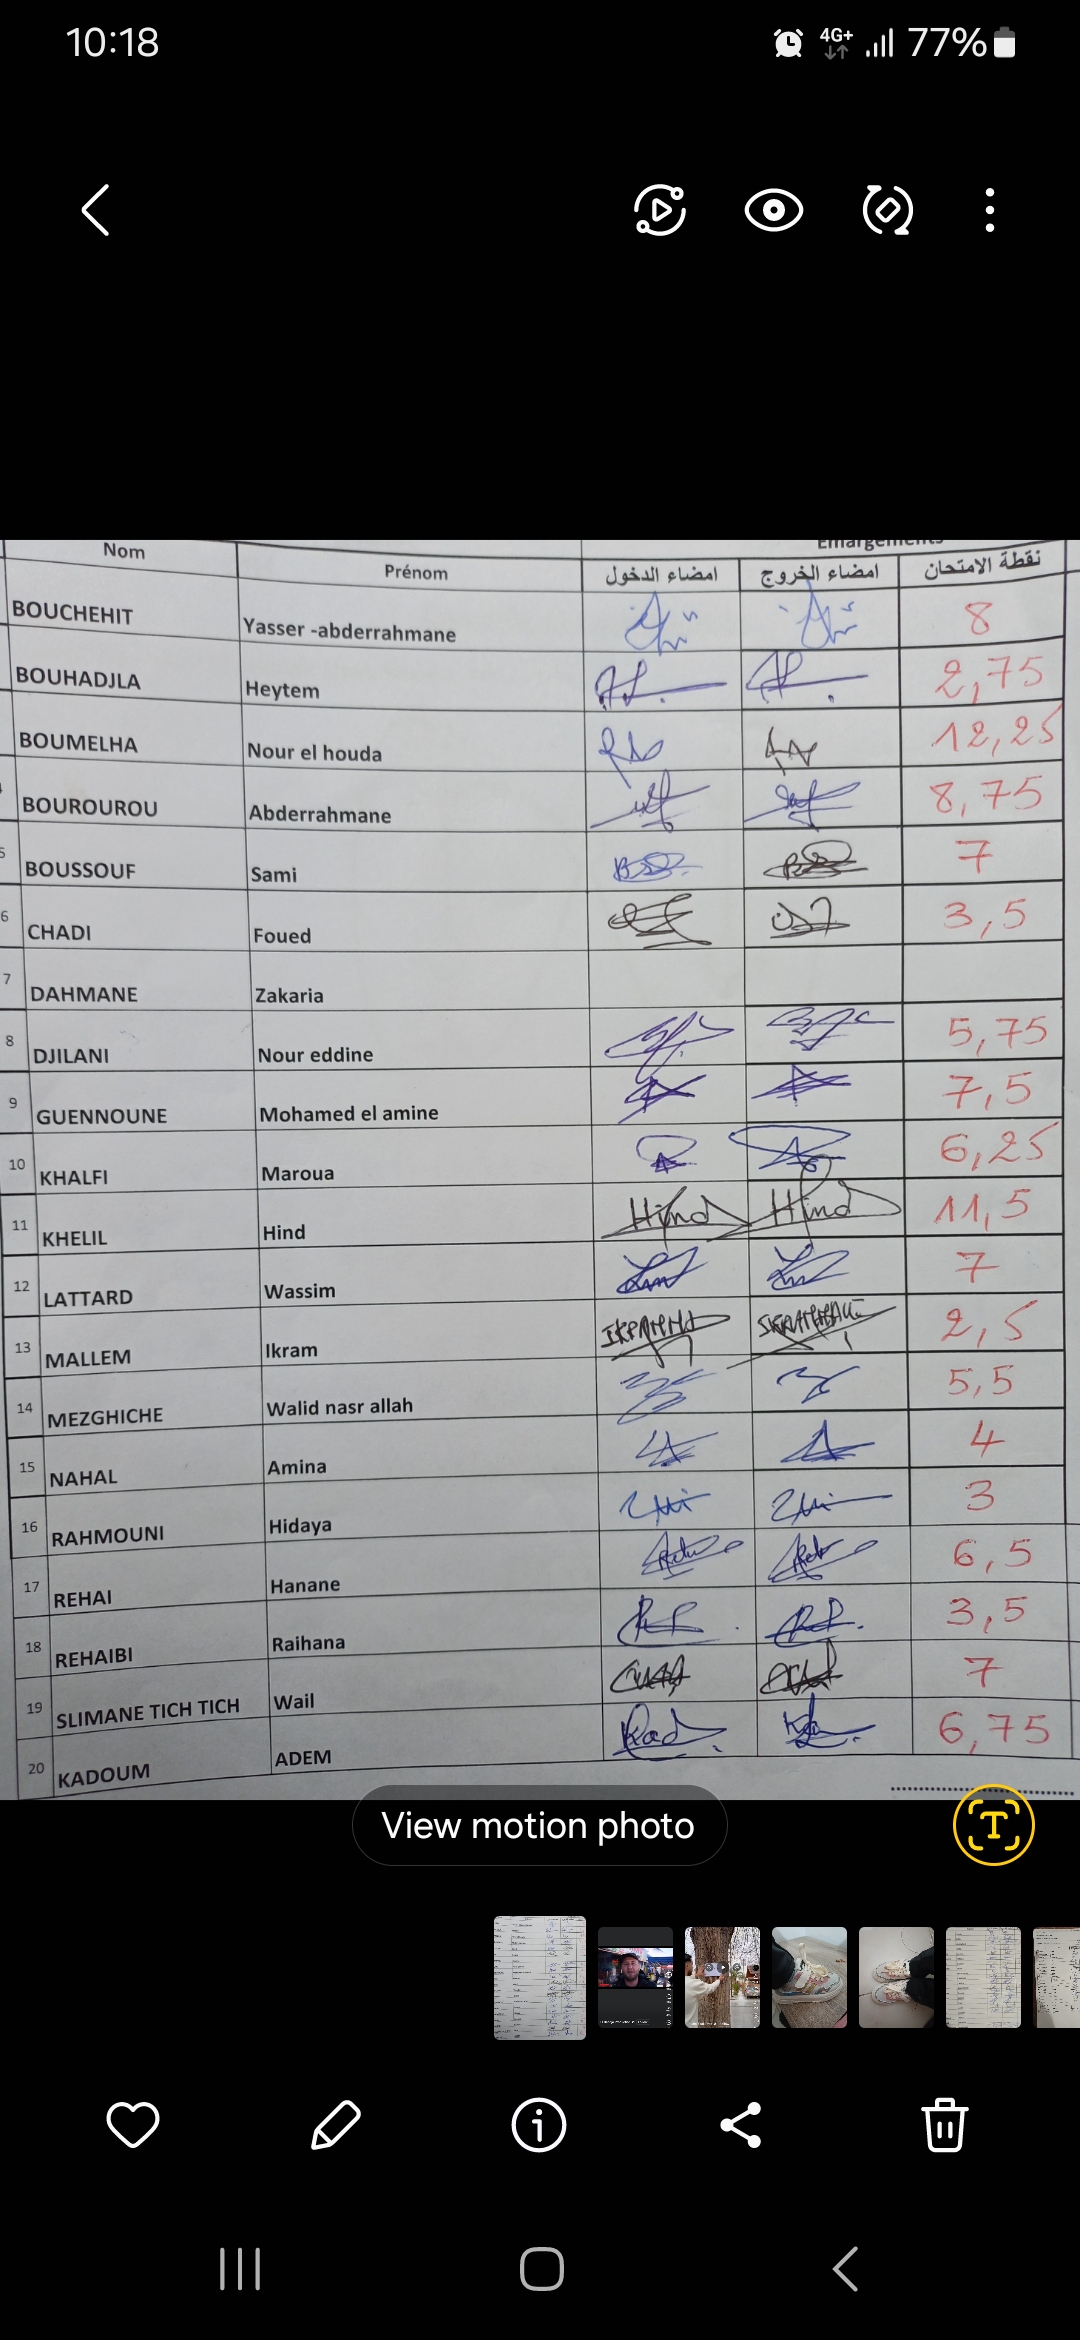 10:18
4G+ 77%
Emargements
Nom Prénom امضاء الدخول امضاء الخروج نقطة الامتحان
BOUCHEHIT Yasser -abderrahmane 8
BOUHADJLA Heytem 2,75
BOUMELHA Nour el houda 12,25
BOUROUROU Abderrahmane 8,75
5 BOUSSOUF Sami 7
6 CHADI Foued 3,5
7 DAHMANE Zakaria
8 DJILANI Nour eddine 5,75
9 GUENNOUNE Mohamed el amine 7,5
10 KHALFI Maroua 6,25
11 KHELIL Hind Hind Hind 11,5
12 LATTARD Wassim 7
13 MALLEM Ikram 2,5
14 MEZGHICHE Walid nasr allah 5,5
15 NAHAL Amina 4
16 RAHMOUNI Hidaya 3
17 REHAI Hanane 6,5
18 REHAIBI Raihana 3,5
19 SLIMANE TICH TICH Wail 7
20 KADOUM ADEM 6,75
View motion photo
T